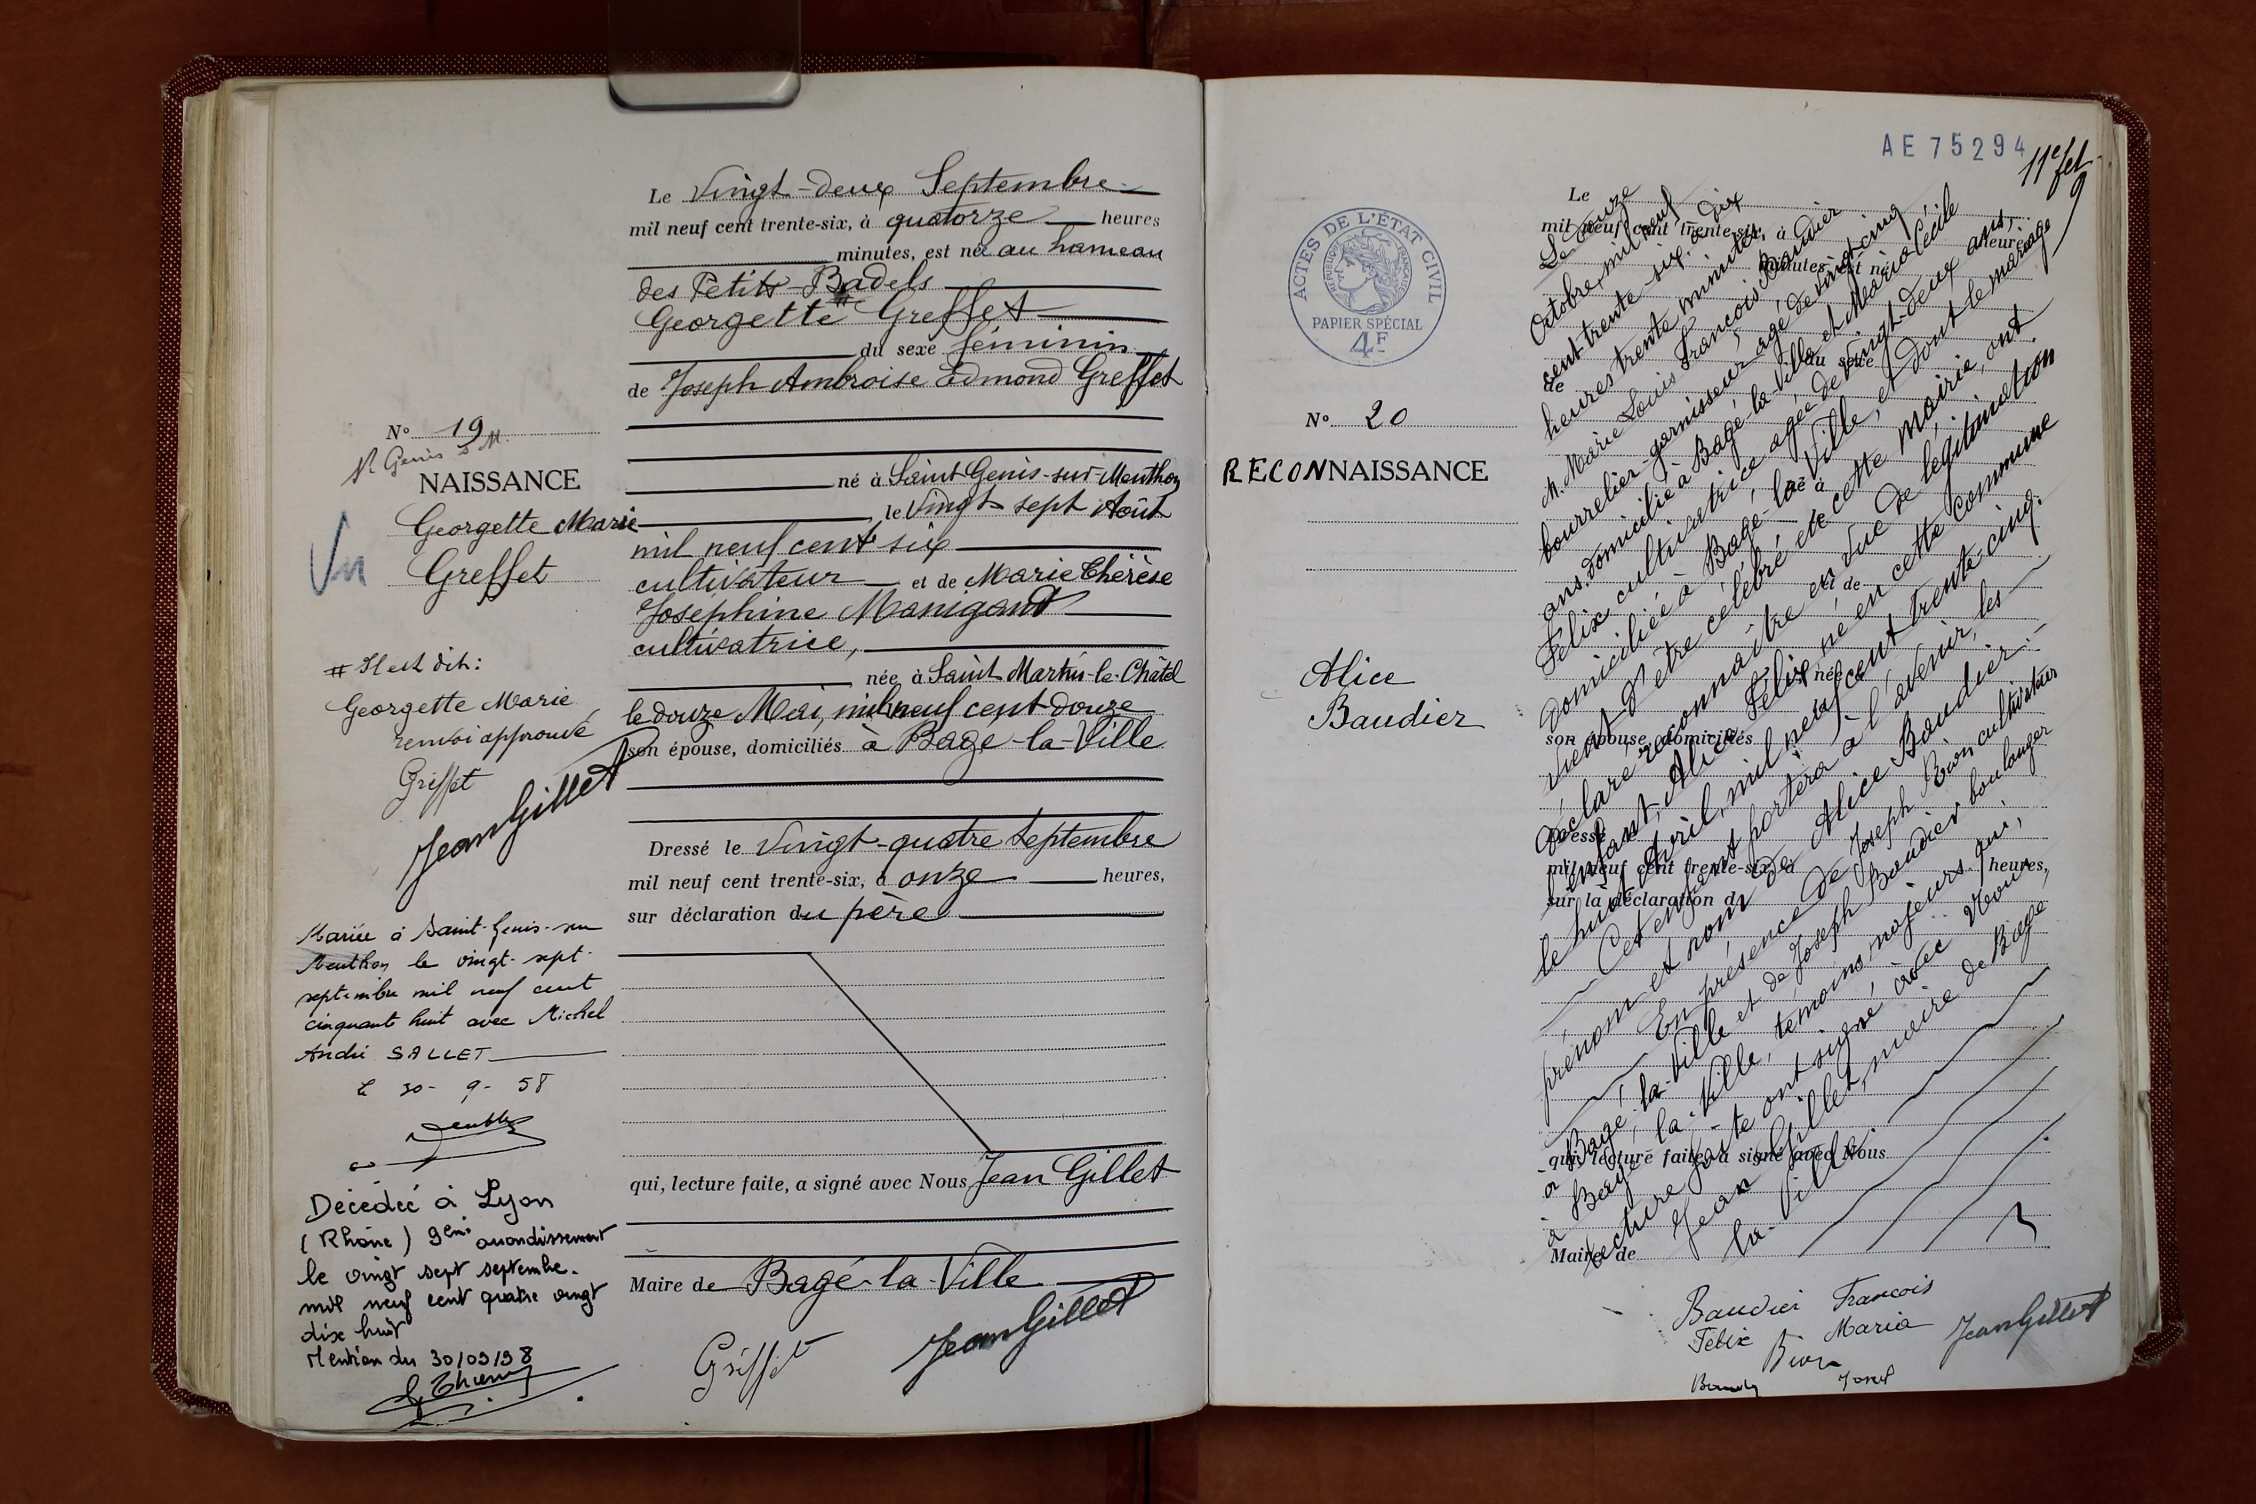 N° 19
St Genis s M.
NAISSANCE
Georgette Marie
Greffet
Vu
# Il est dit:
Georgette Marie
renvoi approuvé
Greffet
Jean Gillet
Mariée à Saint-Genis-sur
Menthon le vingt-sept
septembre mil neuf cent
cinquante huit avec Michel
André SALLET
le 30-9-58
Décédée à Lyon
(Rhône) 9ème arrondissement
le vingt sept septembre
mil neuf cent quatre vingt
dix huit
Mention du 30/09/98
Le Vingt-deux Septembre
mil neuf cent trente-six, à quatorze heures
minutes, est née au hameau
des Petits-Badels
Georgette # Greffet
du sexe féminin
de Joseph Ambroise Edmond Greffet
né à Saint-Genis-sur-Menthon
, le Vingt-sept Août
mil neuf cent six
cultivateur et de Marie Thérèse
Josephine Manigand
cultivatrice,
née à Saint Martin-le-Châtel
le douze Mai, mil neuf cent douze
son épouse, domiciliés à Bagé-la-Ville
Dressé le Vingt-quatre Septembre
mil neuf cent trente-six, à onze heures,
sur déclaration du père
qui, lecture faite, a signé avec Nous Jean Gillet
Maire de Bagé-la-Ville
Greffet
Jean Gillet
AE 75294
11e fet
9
ACTES DE L'ÉTAT CIVIL
RÉPUBLIQUE FRANÇAISE
PAPIER SPÉCIAL
4F
N° 20
RECONNAISSANCE
Alice
Baudier
Le
mil neuf cent trente-six, à
heures
minutes, est né
du sexe
de
né à
et de
née
son épouse, domiciliés
Dressé le
mil neuf cent trente-six, à heures,
sur la déclaration d
qui, lecture faite, a signé avec Nous
Maire de
Le onze
Octobre, mil neuf
cent trente-six, à dix
heures trente minutes
M. Marie Louis François Baudier
bourrelier-garnisseur agé de vingt-cinq
ans, domicilié à Bagé-la-Ville et Maria Cécile
Félix cultivatrice agée de vingt-deux ans,
domiciliée à Bagé-la-Ville, et dont le mariage
vient d'être célébré en cette mairie, ont
déclaré reconnaître en vue de légitimation
l'enfant, Alice Félix, né en cette commune
le huit Avril, mil neuf cent trente-cinq.
Cet enfant portera à l'avenir, les
prénom et nom de Alice Baudier.
En présence de Joseph Bion cultivateur
à Bagé-la-Ville et de Joseph Baudier boulanger
à Bagé-la-Ville, témoins majeurs qui,
lecture faite ont signé avec Nous
Jean Gillet, maire de Bagé
la-Ville.
Baudier François
Félix Maria
Bion
Jean Gillet